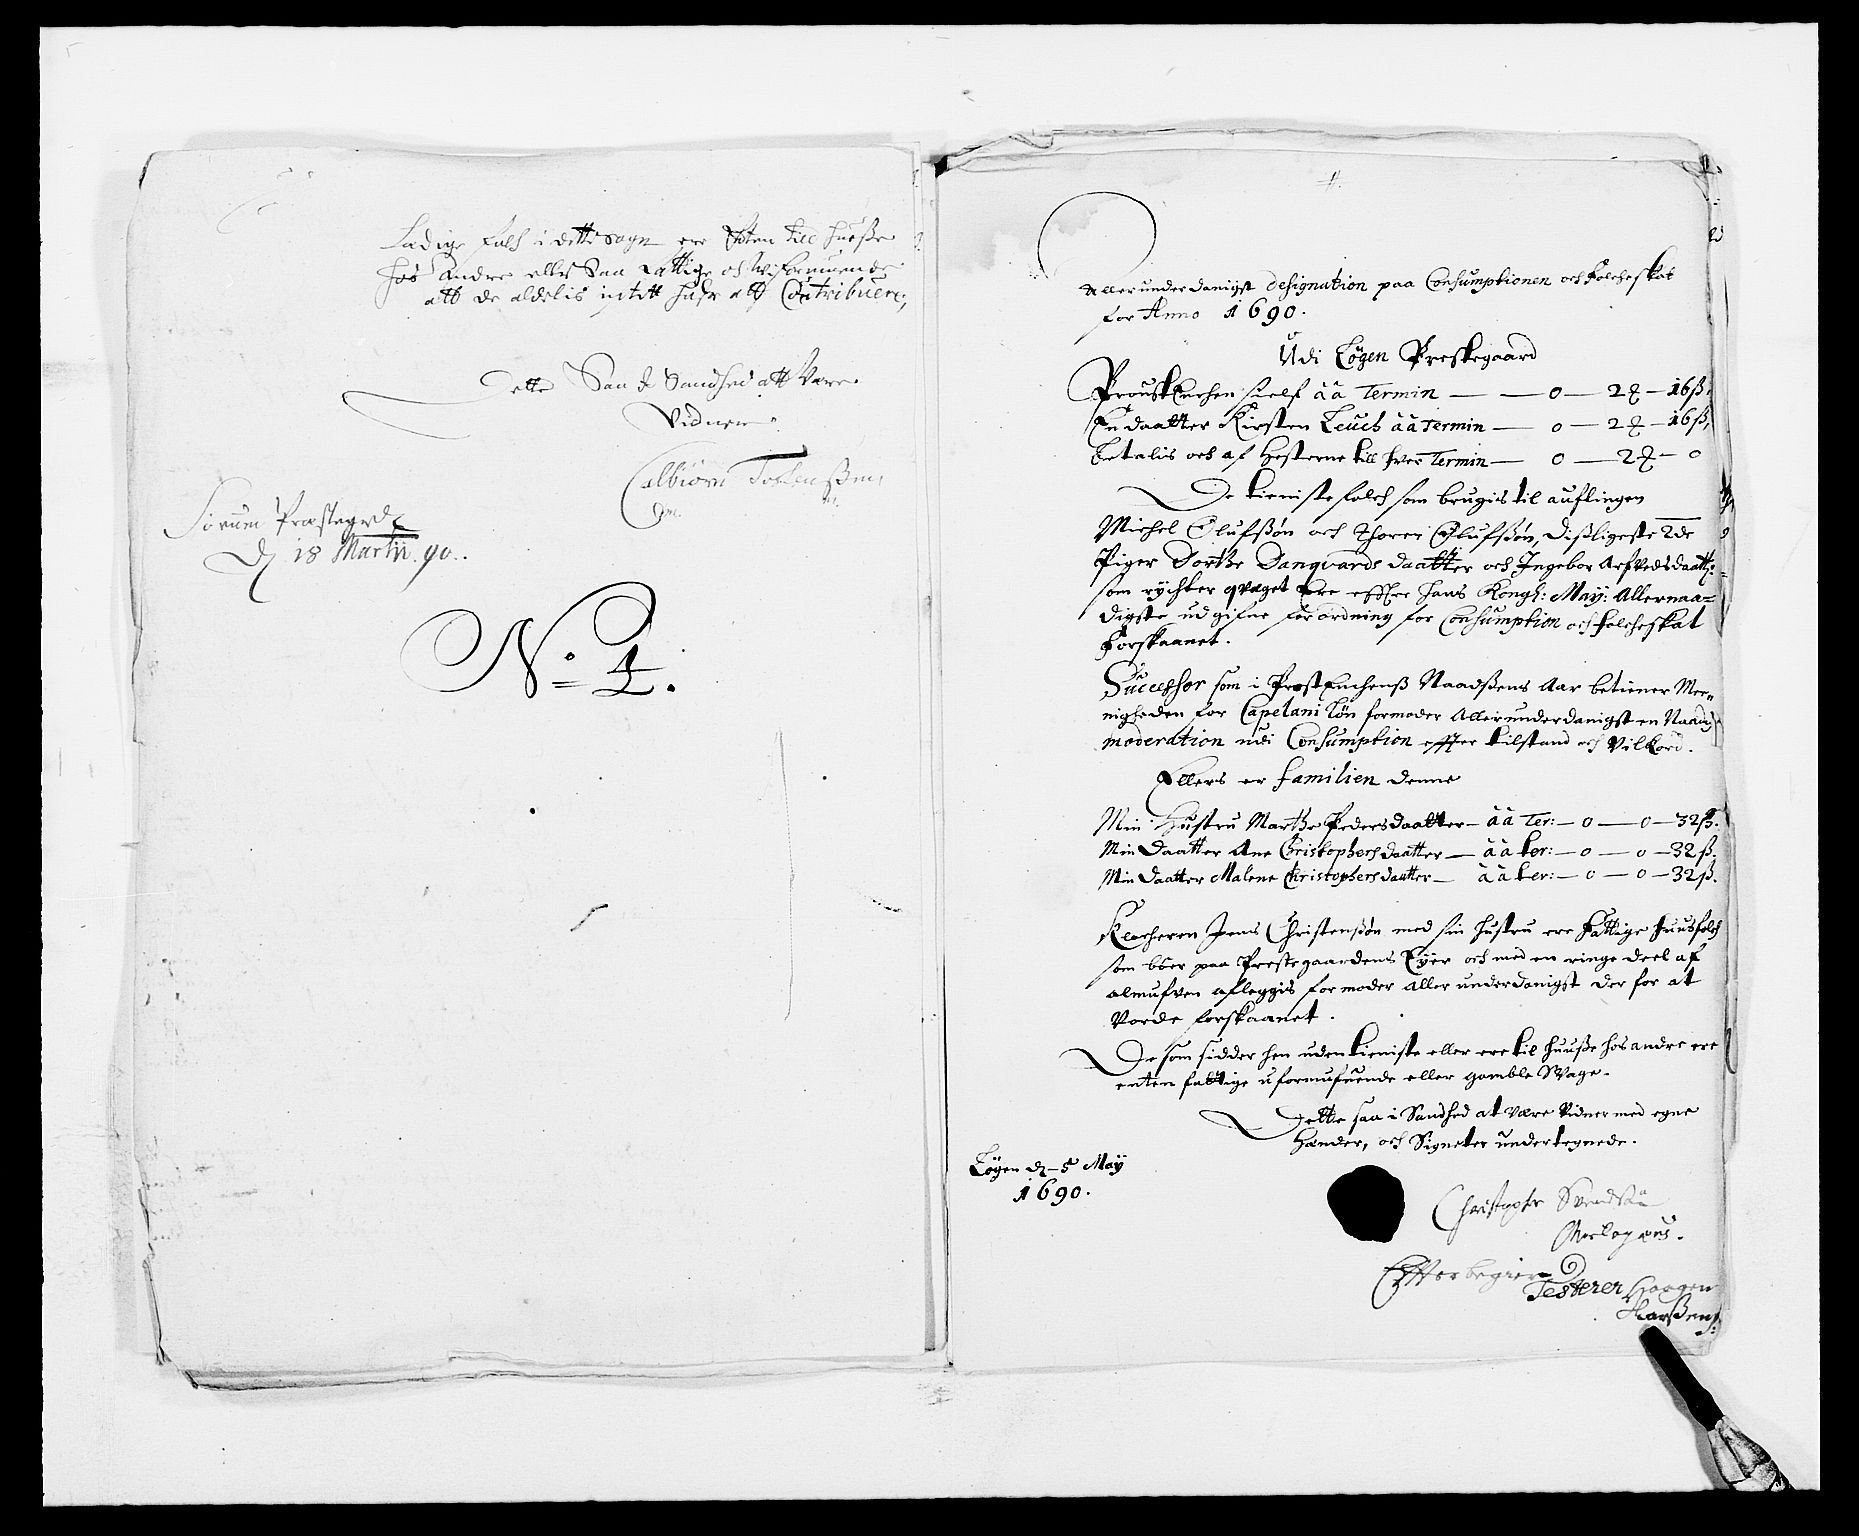 Ledige folch i dette sogn ere Enten till huusse
hos andre eller Saa fattige och uformuende
att de aldelis intett hafr att Contribuere,
Dette Saa J Sandhed att Være
Vidner
Sørum Præstegrd
D 18 Martii. 90.
No 4.
Allerunderdanigst designation paa Consumptionen och Folcheskat
for Anno 1690.
Udi Løgen Prestegaard
Proustenchen sielf āā Termin — — 0 — 2 — 16 ß.
En daatter Kirsten Leuch āā Termin — 0 — 2 — 16 ß,
betalis och af Hesterne till hver Termin — 0 — 2 — 0
De tieniste folch som brugis til auflingen
Michel Olufsøn och Thorer Olufsøn, disligeste 2de
Piger Dorthe Danqvards daatter och Ingebor Arfvedsdaatt:
som rychter qvæget Ere effter hans Kongl: May: Allernaa=
digste udgifne forordning for Consumption och folcheskat
Forskaanet.
Successor som i ProstEnchens Naadsens Aar betiener Mee=
nigheden for Capelani løn formoder Allerunderdanigst en Naadig
moderation udi Consumption effter tilstand och Vilkord.
Ellers er familien denne
Min Hustru Marthe Pedersdaatter — āā Ter: — 0 — 0 — 32 ß.
Min Daatter Ane Christophersdaatter — āā ter: — 0 — 0 — 32 ß.
Min daatter Malene Christophersdaatter — āā ter: — 0 — 0 — 32 ß.
Klocheren Jens Christensøn med sin hustru ere Fattige huusfolch
som boer paa Prestegaardens Eyer och med en ringe deel af
almufven aflæggis formoder Allerunderdanigst der for at
Vorde forskaanet.
De som sidder hen uden tieniste eller ere til huusse hos andre ere
enten fattige uformufuende eller gamble Svage.
Dette saa i Sandhed at være Vidner med egne
Hænder, och Signeter undertegnede.
Løgen d. 5 May
1690.
Christopher Svendsen
Effter begiering
Testerer Haagen